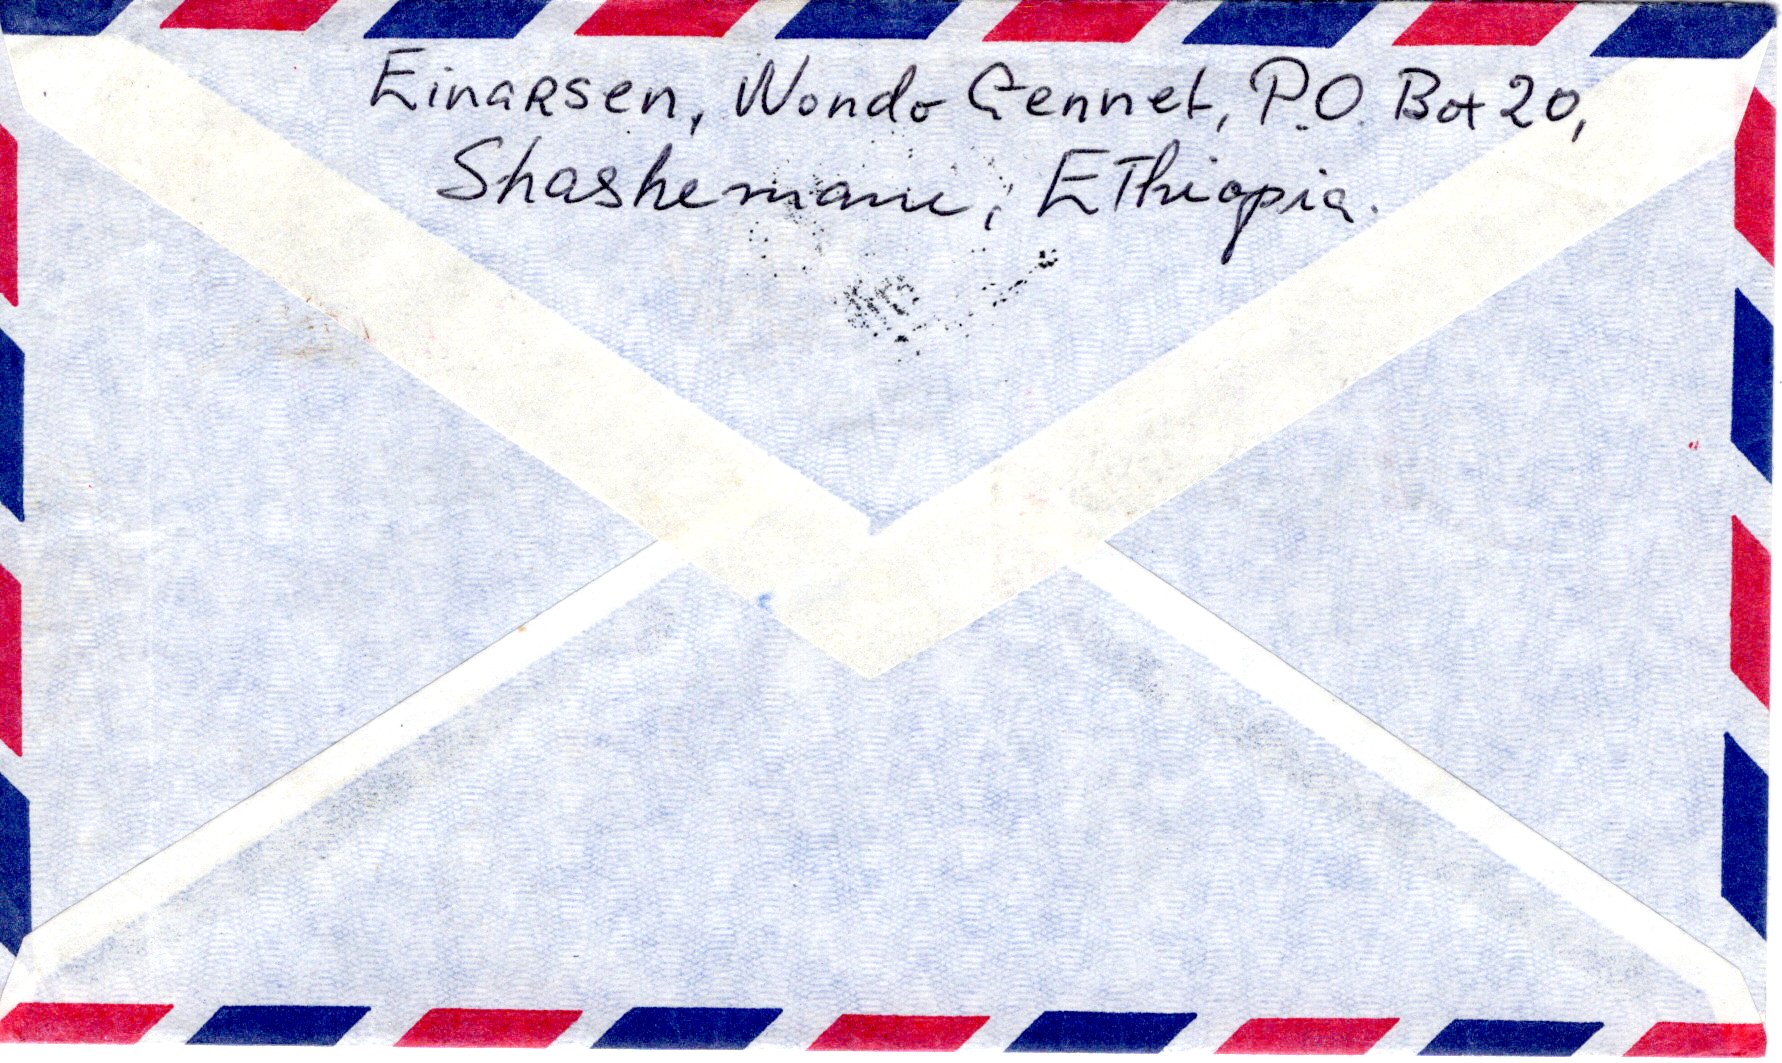 Einarsen, Wondo Gennet, P.O. Box 20,
Shashemane, Ethiopia.